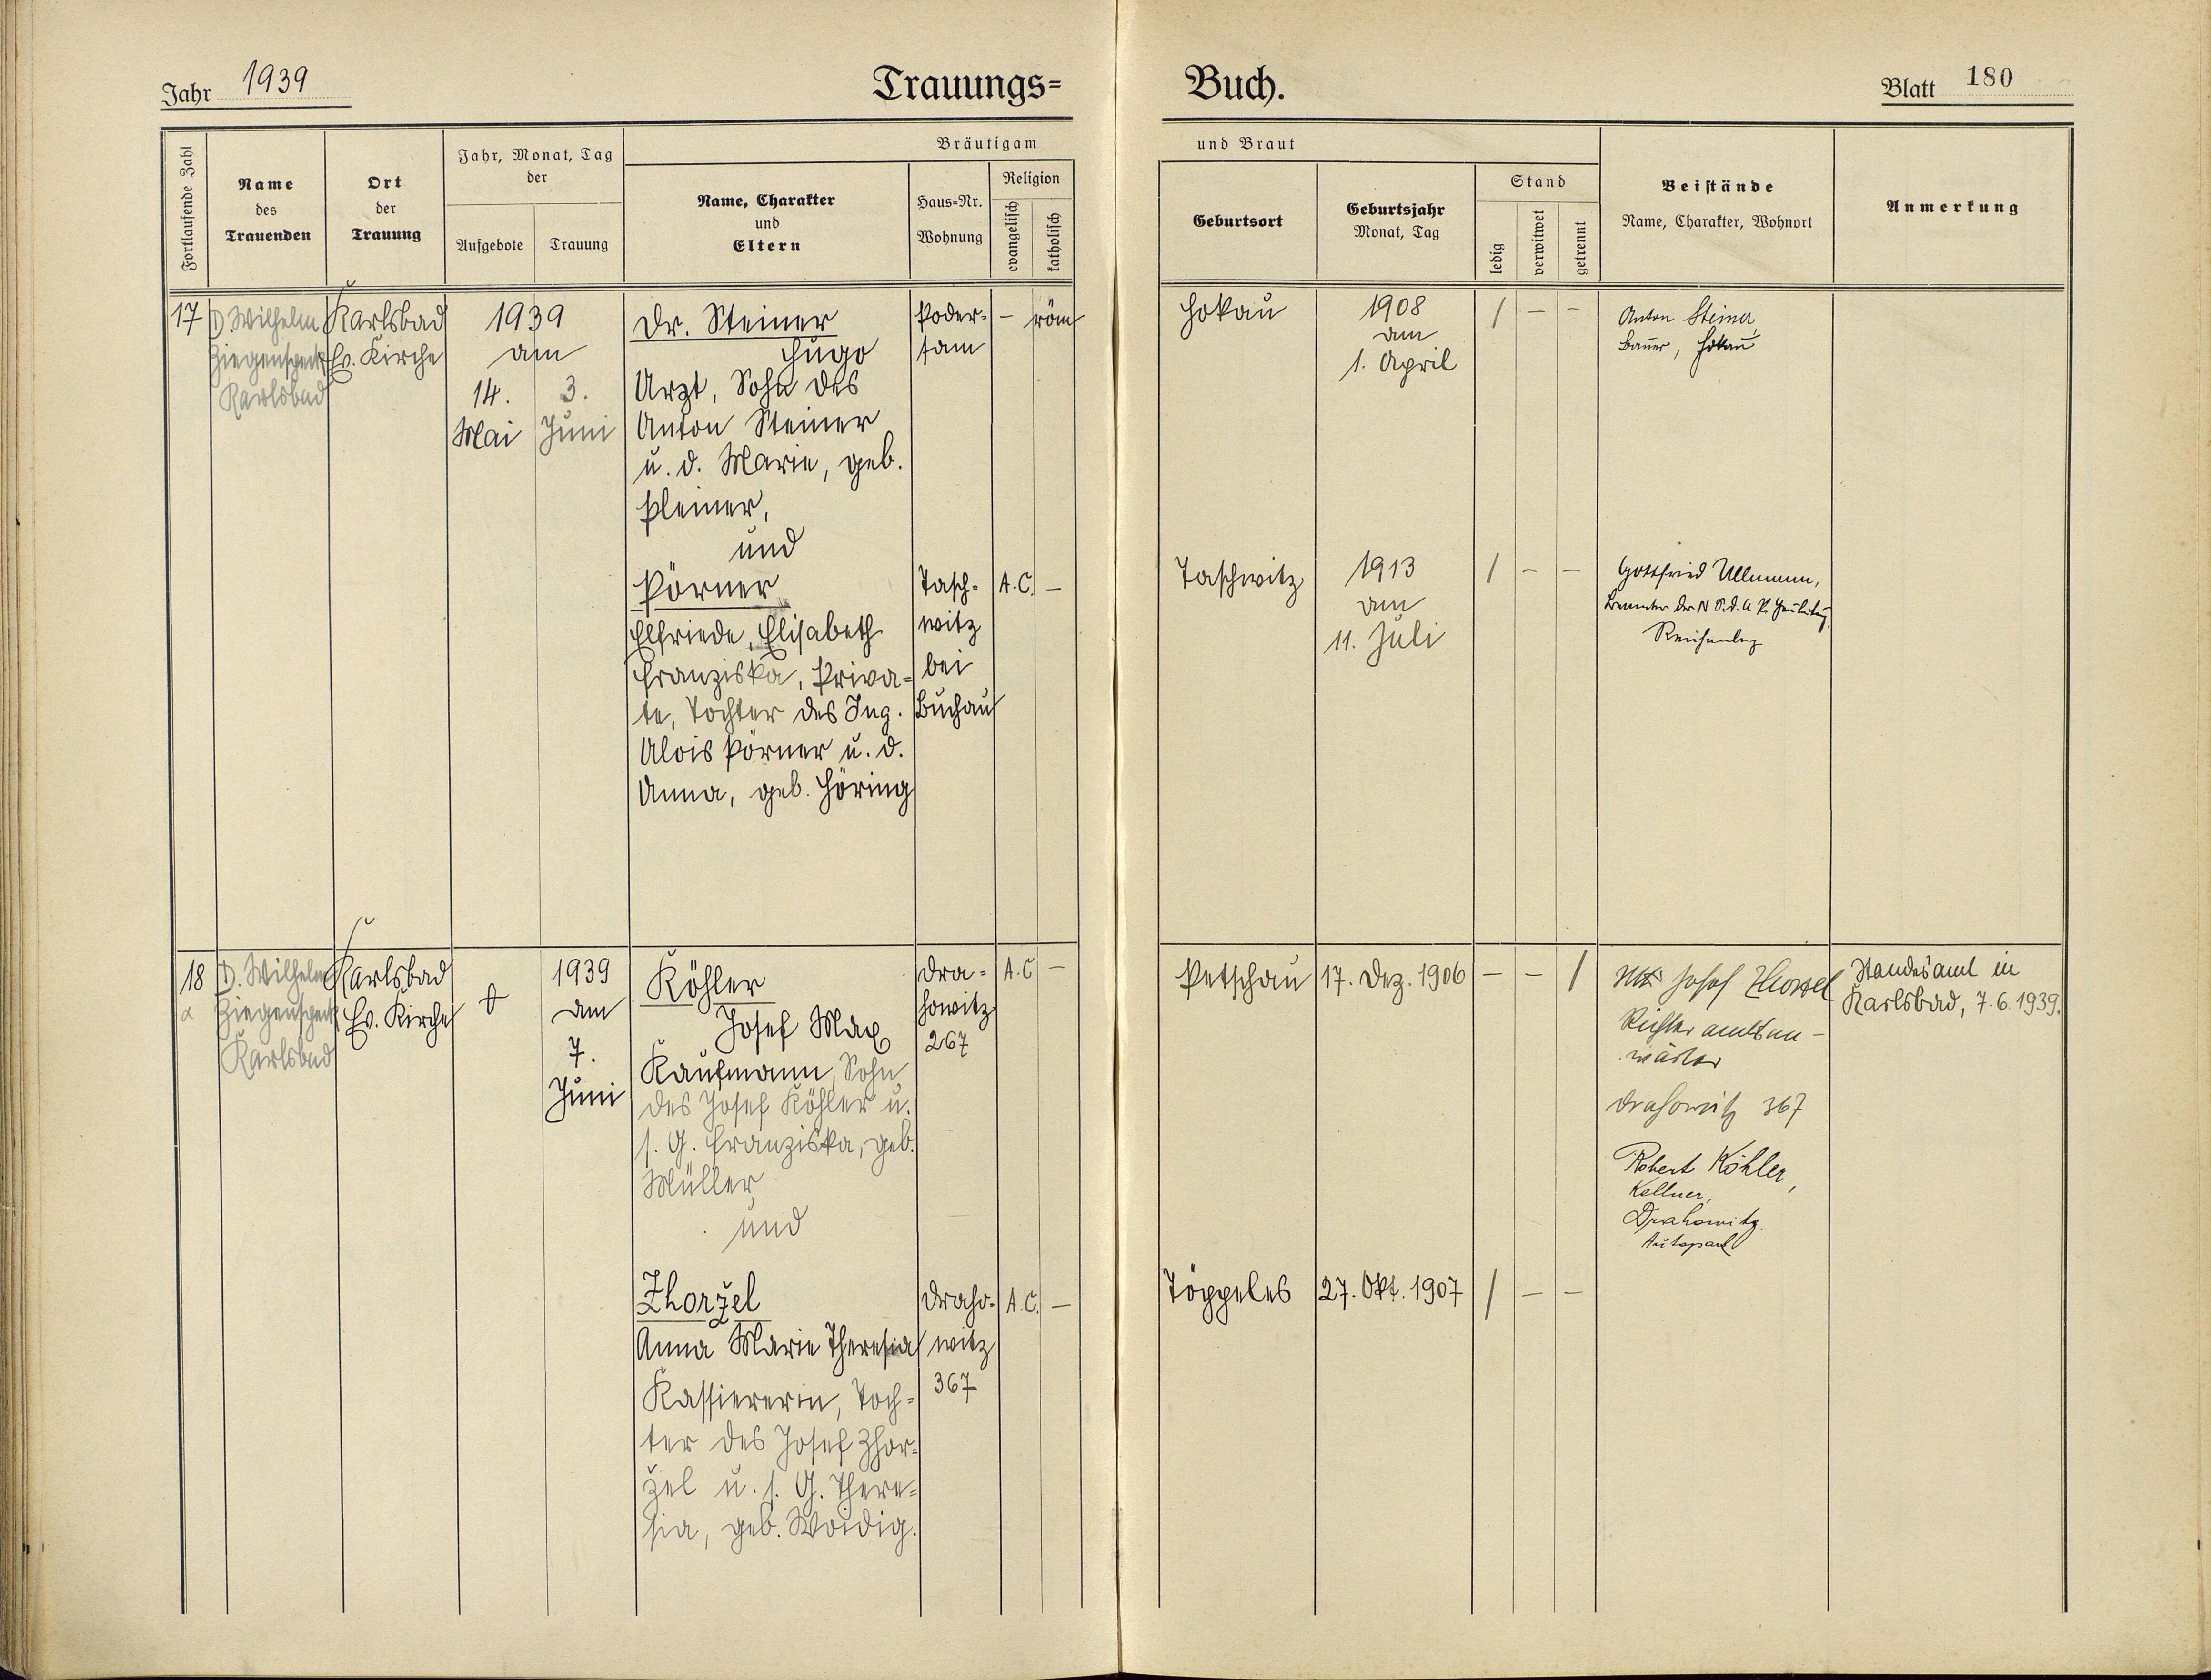 Jahr 1939
Trauungs=
Buch.
Blatt 180
Fortlaufende Zahl
Name
des
Trauenden
Ort
der
Trauung
Jahr, Monat, Tag
der
Aufgebote
Trauung
Bräutigam
Name, Charakter
und
Eltern
Haus=Nr.
Wohnung
Religion
evangelisch
katholisch
und Braut
Geburtsort
Geburtsjahr
Monat, Tag
Stand
ledig
verwitwet
getrennt
Beistände
Name, Charakter, Wohnort
Anmerkung
17
D. Wilhelm
Ziegenspeck
Karlsbad
Karlsbad
Ev. Kirche
1939
am
14.
Mai
3.
Juni
Dr. Steiner
Hugo
Arzt, Sohn des
Anton Steiner
u. d. Marie, geb.
Pleiner,
und
Pörner
Elfriede, Elisabeth
Franziska, Priva=
te, Tochter des Ing.
Alois Pörner u. d.
Anna, geb. Höring
Poder=
sam
- röm
Tasch=
witz
bei
Buchau
A.C. -
Hokau
1908
am
1. April
/ - -
Anton Steiner,
Bauer, Hokau
Taschwitz
1913
am
11. Juli
/ - -
Gottfried Ullmann,
Beamter der N.S.d.A.P.
18
D. Wilhelm
Ziegenspeck
Karlsbad
Karlsbad
Ev. Kirche
1939
am
7.
Juni
Köhler
Josef Max
Kaufmann, Sohn
des Josef Köhler u.
s. G. Franziska, geb.
Müller,
und
Zhoržel
Anna Marie Theresia
Kassiererin, Toch=
ter des Josef Zhor=
žel u. s. G. There=
sia, geb. Woidig.
Dra=
howitz
267
A.C -
Draho=
witz
367
A.C. -
Petschau
17. Dez. 1906
- - /
Josef
Richteramtsan-
wärter
Drahowitz 367
Robert Köhler,
Kellner,
Drahowitz.
Töppeles
27. Okt. 1907
/ - -
Standesamt in
Karlsbad, 7.6.1939.